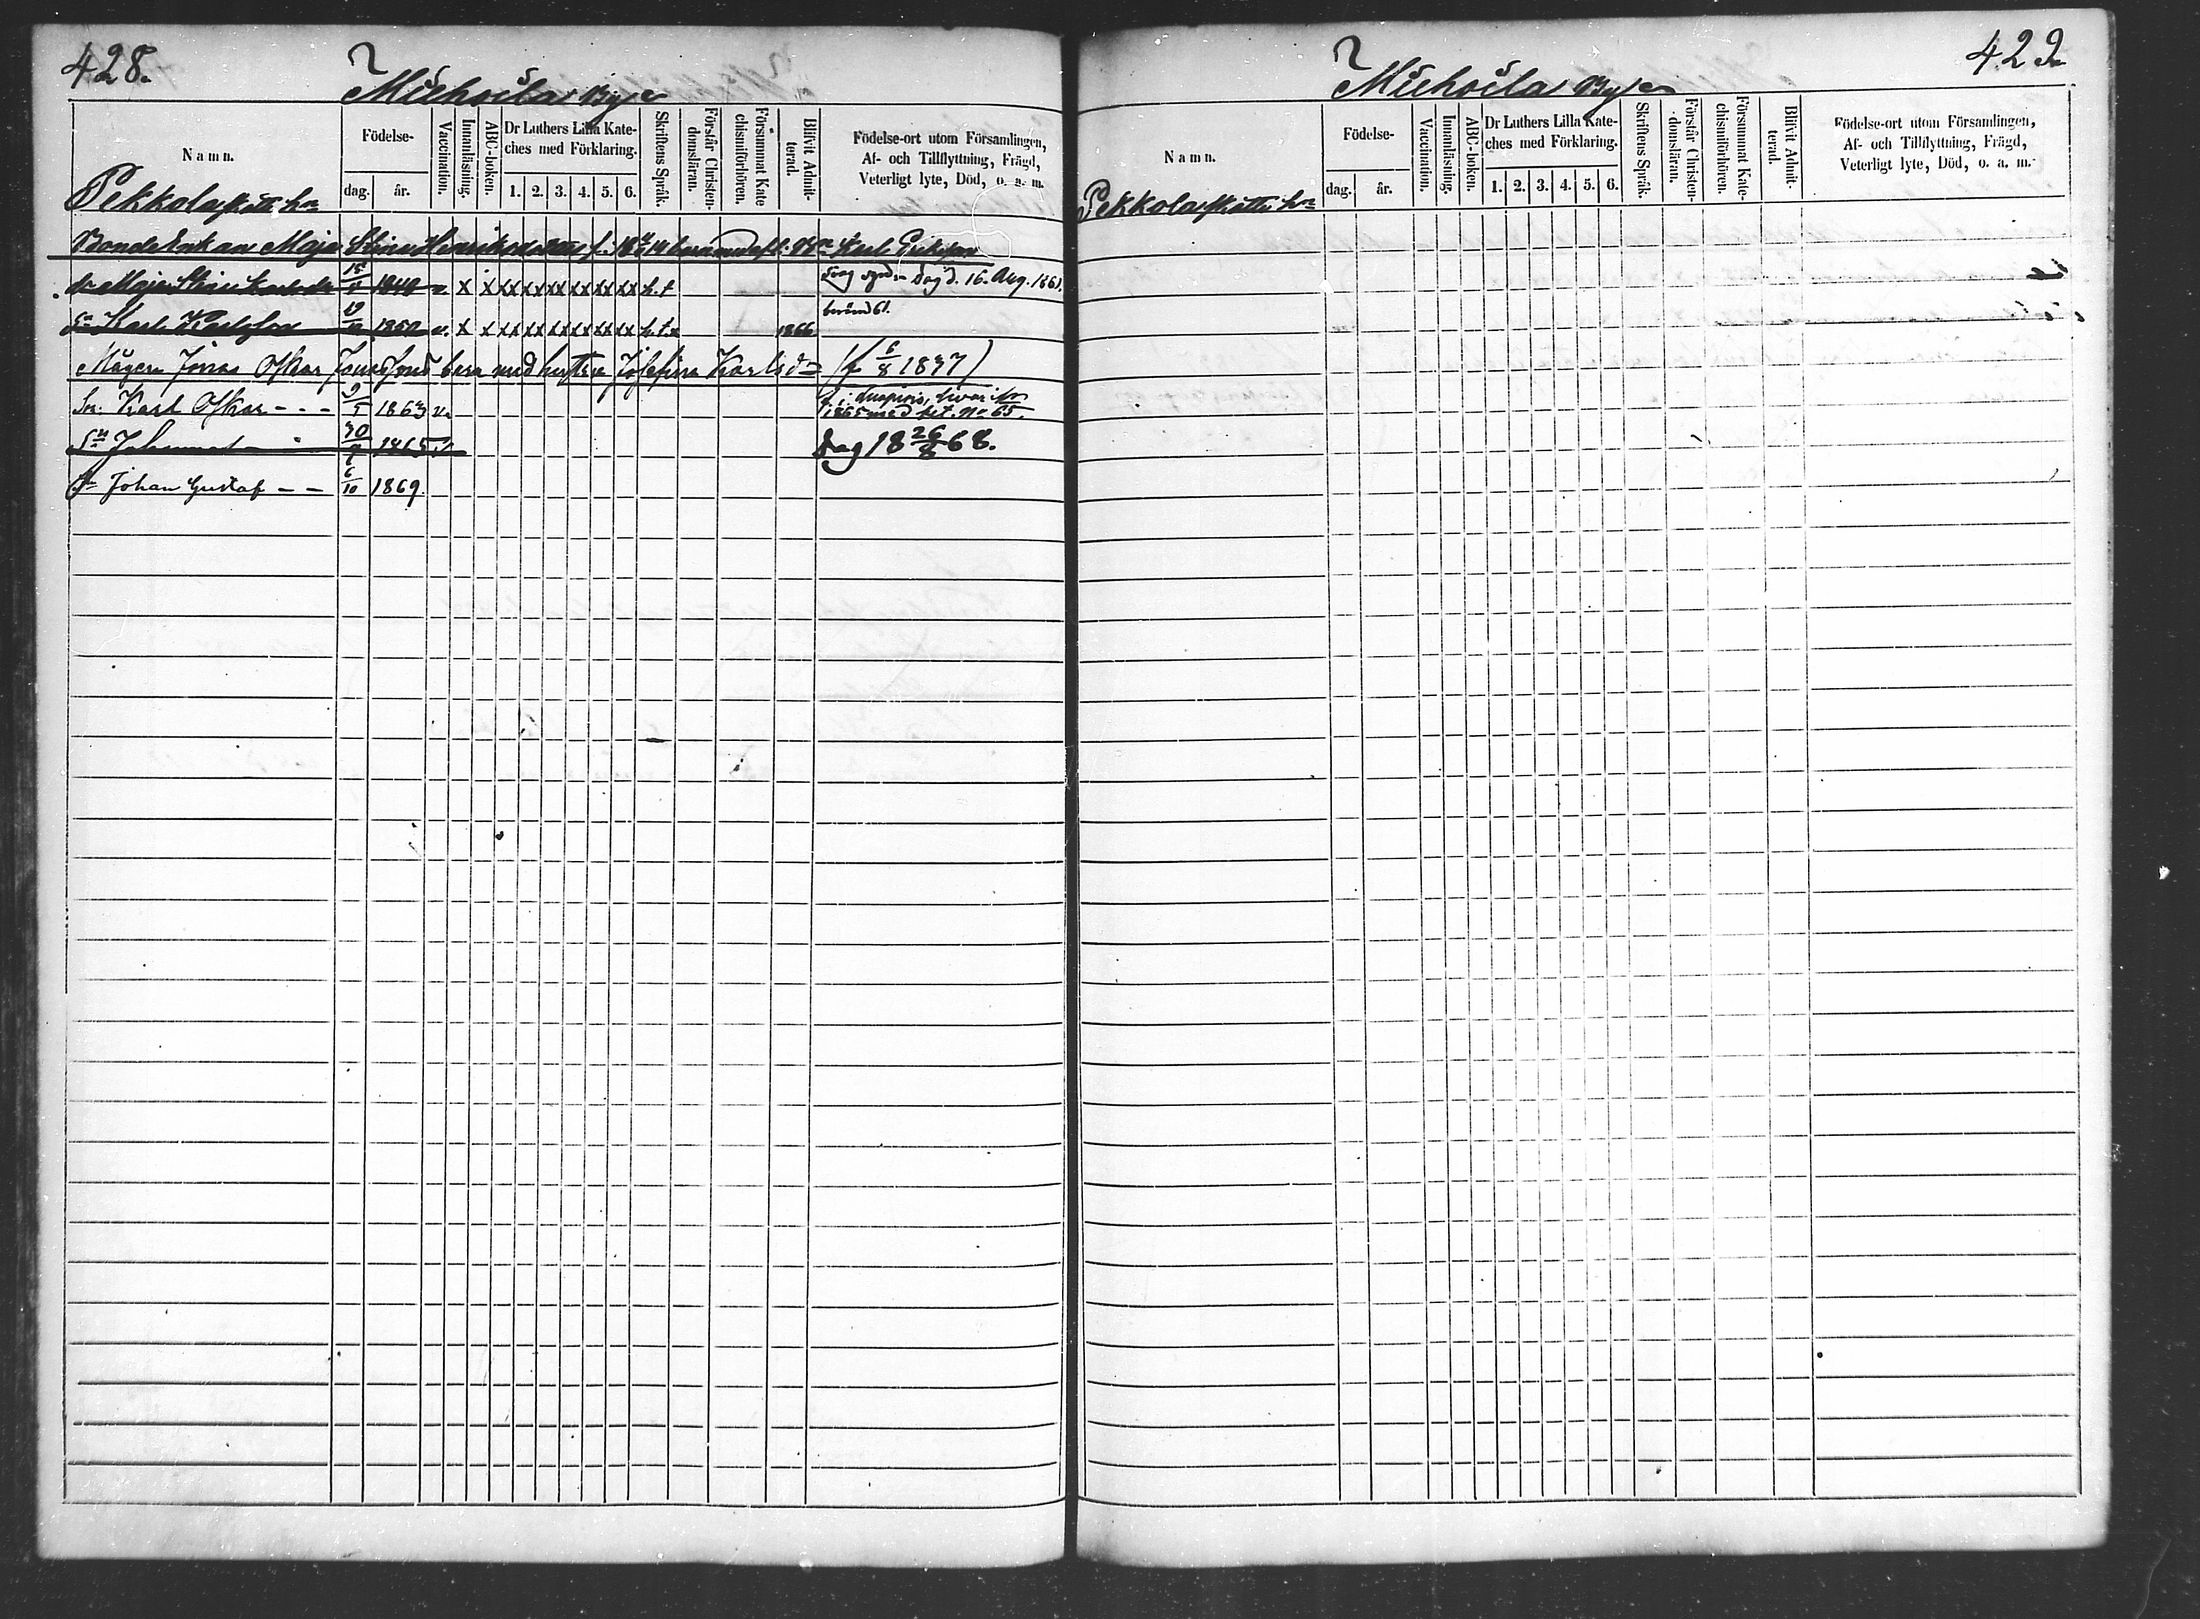 428.
Michoila By
Namn.
Födelse-
dag.
år.
Vaccination.
Innanläsning.
ABC-boken.
Dr Luthers Lilla Kate-
ches med Förklaring.
1. 2. 3. 4. 5. 6.
Skriftens Språk.
Förstår Christen-
domsläran.
Försummat Kate
chismiförhören.
Blifvit Admit-
terad.
Födelse-ort utom Församlingen,
Af- och Tillflyttning, Frägd,
Veterligt lyte, Död, o. a. m.
Pekkola skatte hn
Bonde Enkan Maja Stina Henriksd. f. 18 14 Karl Eriksson
dr Maja Stina Karlsdr 1849 v. x x xx xx xx xx xx xx h.t Dog d. 16. Aug. 1861.
Sn Karl Karlsson 1850 v. x x xx xx xx xx xx xx h.t. 1866
Mågen Jonas Oskar Jonasson med hustru Josefina Karlsdr (f 6/8 1837)
Sn. Karl Oskar - - - 9/5 1863 v. 1865 med bet. No 65.
Sn Johannes 30/9 1865 Dog 18 26/8 68.
Sn Johan Gustaf - - 6/10 1869.
429
Michoila By
Namn.
Födelse-
dag.
år.
Vaccination.
Innanläsning.
ABC-boken.
Dr Luthers Lilla Kate-
ches med Förklaring.
1. 2. 3. 4. 5. 6.
Skriftens Språk.
Förstår Christen-
domsläran.
Försummat Kate-
chismiförhören.
Blifvit Admit-
terad.
Födelse-ort utom Församlingen,
Af- och Tillflyttning, Frägd,
Veterligt lyte, Död, o. a. m.
Pekkola skatte hn